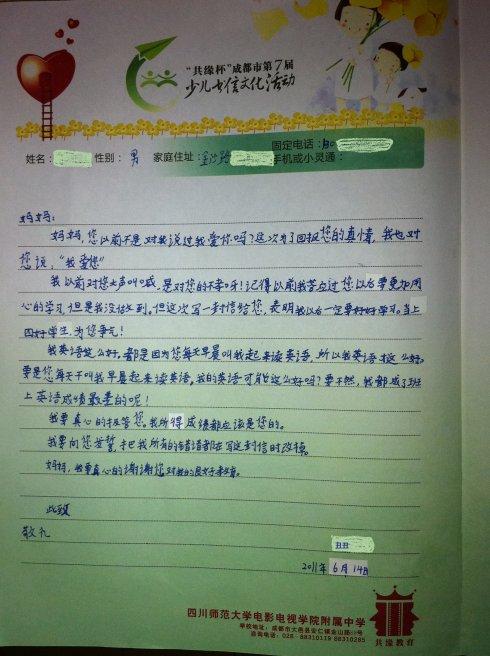 “共缘杯”成都市第7届
少儿书信文化活动
固定电话：
姓名： 性别：男 家庭住址：金沙路 手机或小灵通：
妈妈：
妈妈，您以前不是对我说过我爱你吗？这次为了回报您的真情，我也对
您说，“我爱您”
我以前对您大声叫喊，是对您的不孝呀！记得以前我答应过您以后要更加用
心的学习，但是我没做到。但这次写一封信给您，表明我以后一定要好好学习。当上
四好学生为您争气！
我英语这么好，都是因为您每天早晨叫我起来读英语，所以我英语才这么好。
要是您每天不叫我早晨起来读英语，我的英语可能这么好吗？要不然，我都成了班
上英语成绩最差的呢！
我要真心的报答您，我所得成绩都应该是您的。
我要向您发誓，把我所有的错误都在写这封信时改掉。
妈妈，我要真心的谢谢您对我的良好教育。
此致
敬礼
丑丑
2011年6月14日
四川师范大学电影电视学院附属中学
学校地址：成都市大邑县安仁镇金山路
咨询电话：028-88310119 88310285
共缘教育